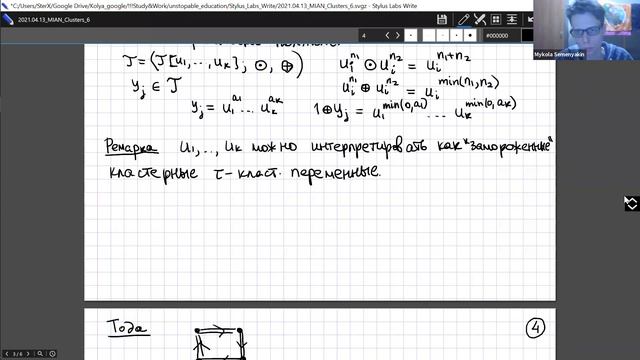 *C:/Users/SterX/Google Drive/Kolya_google/!!!Study&Work/unstopable_education/Stylus_Labs_Write/2021.04.13_MIAN_Clusters_6.svgz - Stylus Labs Write
2021.04.13_MIAN_Clusters_6
4
#000000
Mykola Semenyakin
J = (J[u₁,..,uₖ]; ⊙, ⊕) uᵢ^n₁ ⊙ uᵢ^n₂ = uᵢ^n₁+n₂
yⱼ ∈ J uᵢ^n₁ ⊕ uᵢ^n₂ = uᵢ^min(n₁,n₂)
yⱼ = u₁^a₁ ... uₖ^aₖ 1⊕yⱼ = u₁^min(0,a₁) ... uₖ^min(0,aₖ)
Ремарка u₁,..,uₖ можно интерпретировать как "замороженные"
кластерные τ-класт. переменные.
Тода 4
3/6